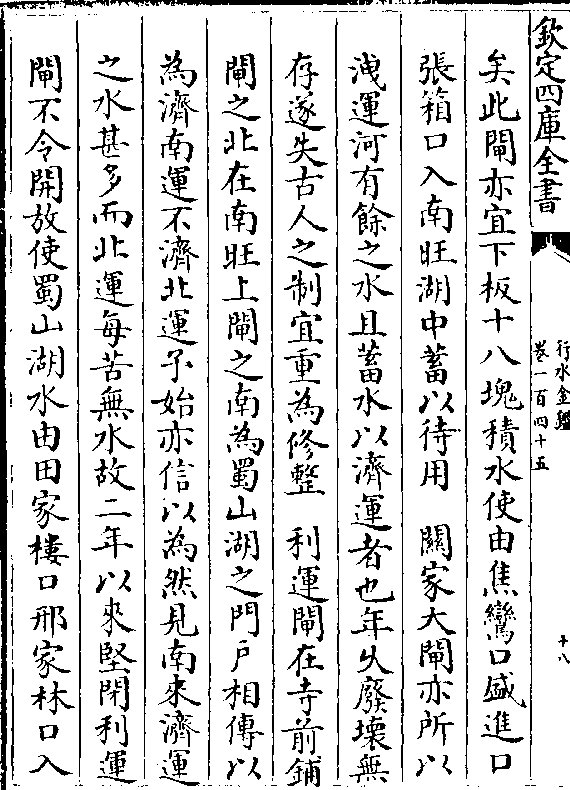 欽定四庫全書
行水金鑑
卷一百四十五
十八
矣此閘亦宜下板十八塊積水使由焦鸞口盛進口
張箱口入南旺湖中蓄以待用　關家大閘亦所以
洩運河有餘之水且蓄水以濟運者也年久廢壞無
存遂失古人之制宜重為修整　利運閘在寺前鋪
閘之北在南旺上閘之南為蜀山湖之門戶相傳以
為濟南運不濟北運予始亦信以為然見南來濟運
之水甚多而北運每苦無水故二年以來堅閉利運
閘不令開放使蜀山湖水由田家樓口邢家林口入